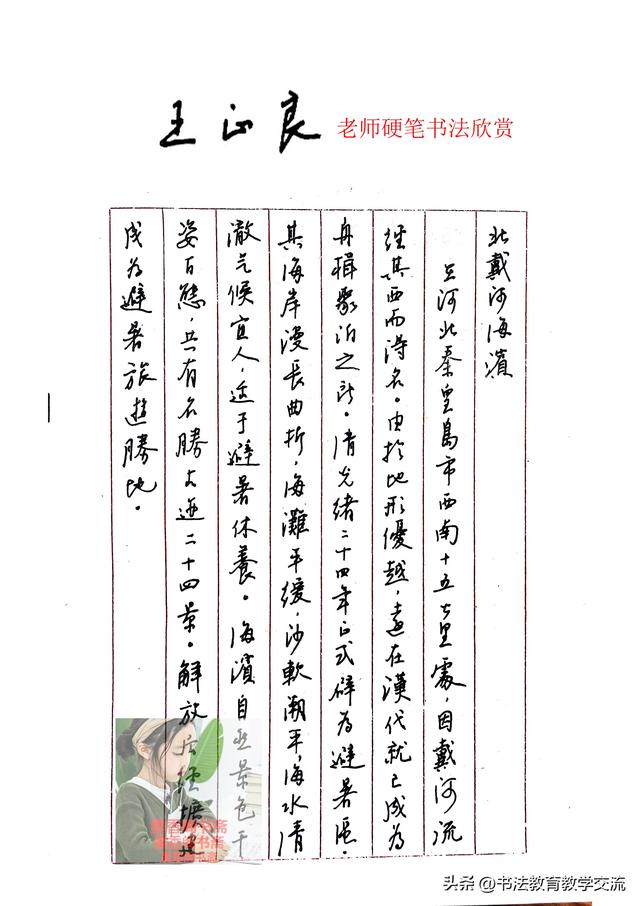 王正良 老师硬笔书法欣赏
北戴河海濱
在河北秦皇島市西南十五公里處，因戴河流
經其西而得名。由於地形優越，遠在漢代就已成為
舟楫聚泊之所。清光緒二十四年正式辟為避暑區。
其海岸漫長曲折，海灘平緩，沙軟潮平，海水清
澈气候宜人，适于避暑休養。海濱自然景色千
姿百態，共有名勝古迹二十四景。解放后經擴建
成为避暑旅遊勝地。
头条 @书法教育教学交流